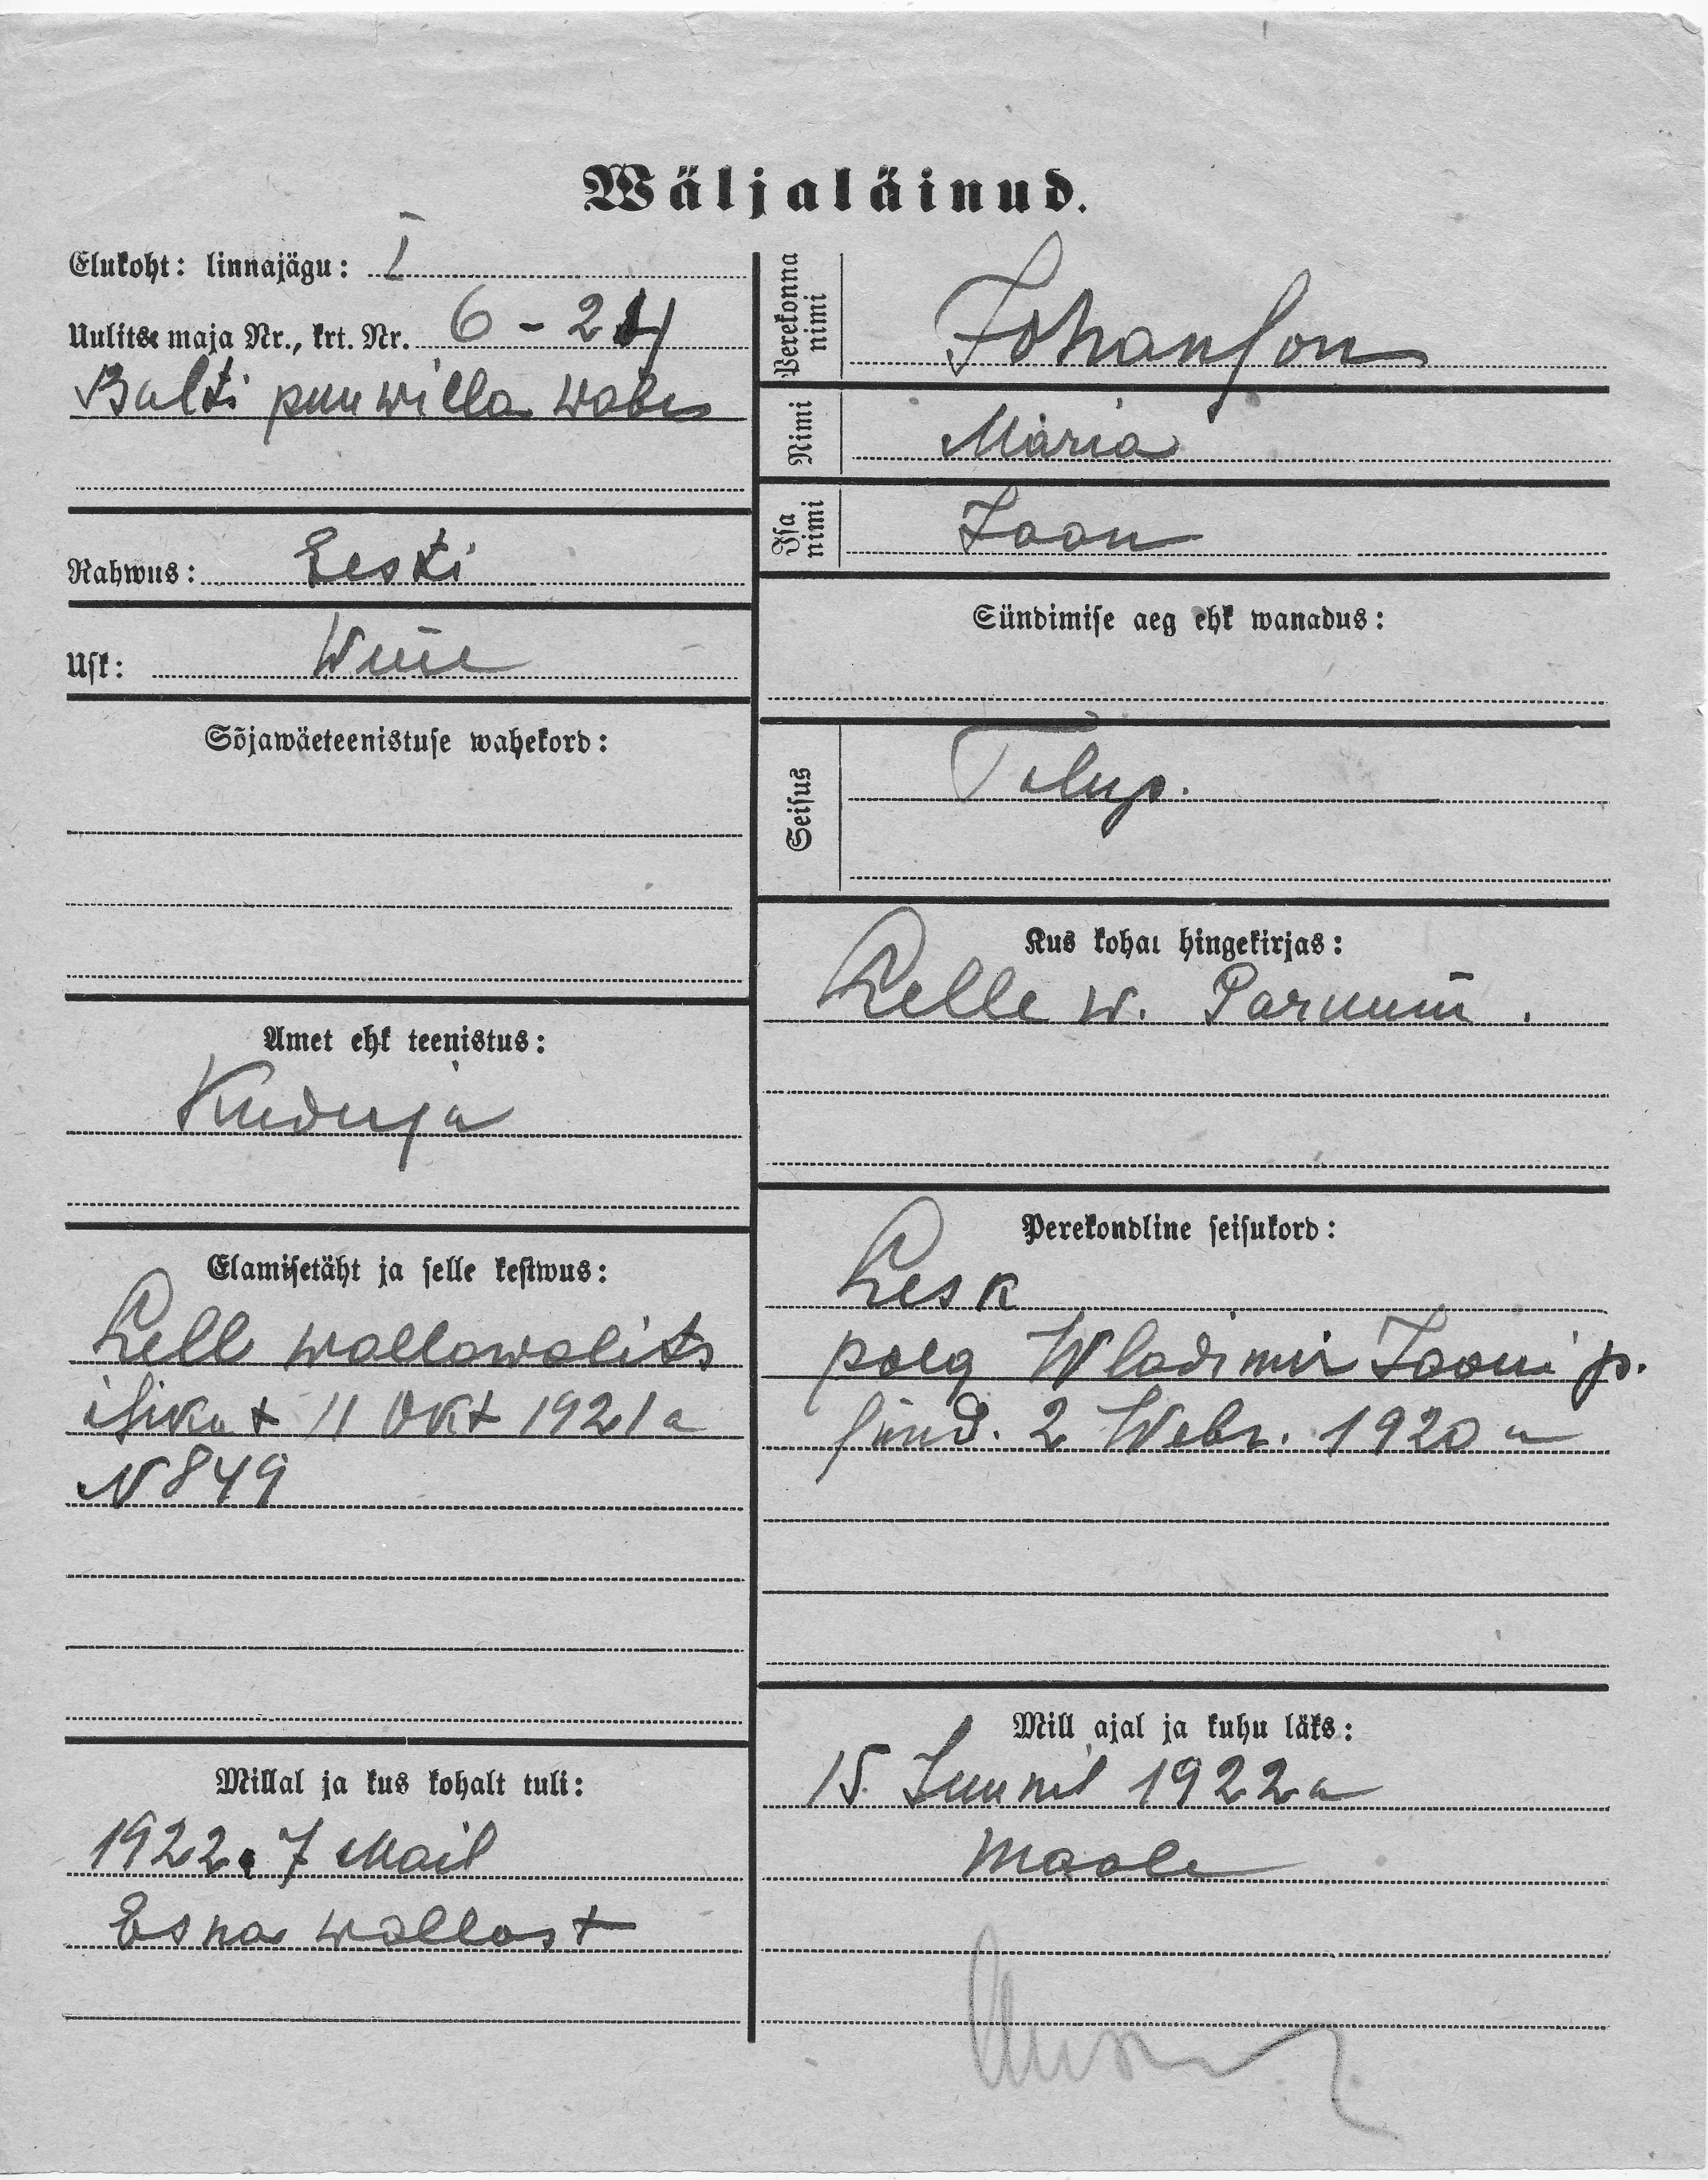 Wäljaläinud.
Elukoht: linnajägu: I
Uulitse maja Nr., krt. Nr. 6-24
Balti puuwilla wabr
Rahwus: Eesti
Usk: Wene
Sõjawäeteenistuse wahekord:
Amet ehk teenistus:
Kuduja
Elamisetäht ja selle kestwus:
Lelle wallawalits
isikut 11 Okt 1921 a
N 849
Millal ja kus kohalt tuli:
1922. 7 Mail
Esna wallast
Perekonna nimi Johanson
Nimi Maria
Isa nimi Jaan
Sündimise aeg ehk wanadus:
Seisus Talup.
Kus kohal hingekirjas:
Lelle w. Pärnum.
Perekondline seisukord:
Lesk
poeg Wladimir Jaani p.
sünd. 2 Webr. 1920 a
Mill ajal ja kuhu läks:
15 Juunil 1922 a
Maale